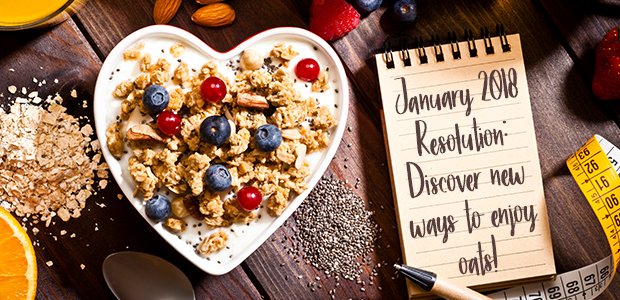 January 2018
Resolution:
Discover new
ways to enjoy
oats!